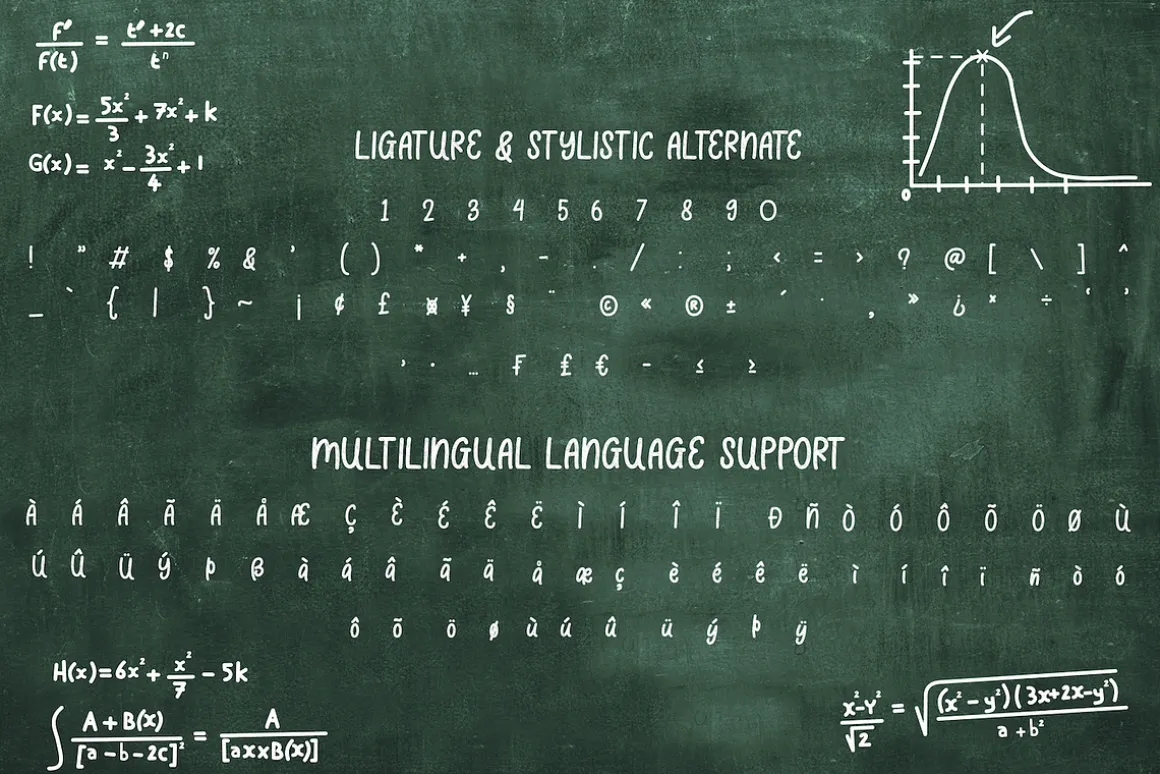 F' / F(t) = t' + 2c / tⁿ
F(x) = 5x² / 3 + 7x² + k
G(x) = x² - 3x² / 4 + 1
0
LIGATURE & STYLISTIC ALTERNATE
1 2 3 4 5 6 7 8 9 0
! " # $ % & ' ( ) * + , - . / : ; < = > ? @ [ \ ] ^
_ ` { | } ~ ¡ ¢ £ ¤ ¥ § ¨ © « ® ± ´ · ¸ » ¿ × ÷ ‘ ’
‚ · … ₣ ₤ € − ≤ ≥
MULTILINGUAL LANGUAGE SUPPORT
À Á Â Ã Ä Å Æ Ç È É Ê Ë Ì Í Î Ï Ð Ñ Ò Ó Ô Õ Ö Ø Ù
Ú Û Ü Ý Þ ß à á â ã ä å æ ç è é ê ë ì í î ï ñ ò ó
ô õ ö ø ù ú û ü ý þ ÿ
H(x)=6x² + x² / 7 - 5k
∫ A + B(x) / [a - b - 2c]² = A / [axxB(x)]
x² - Y² / √2 = √(x² - y²)(3x+2x-y²) / a + b²